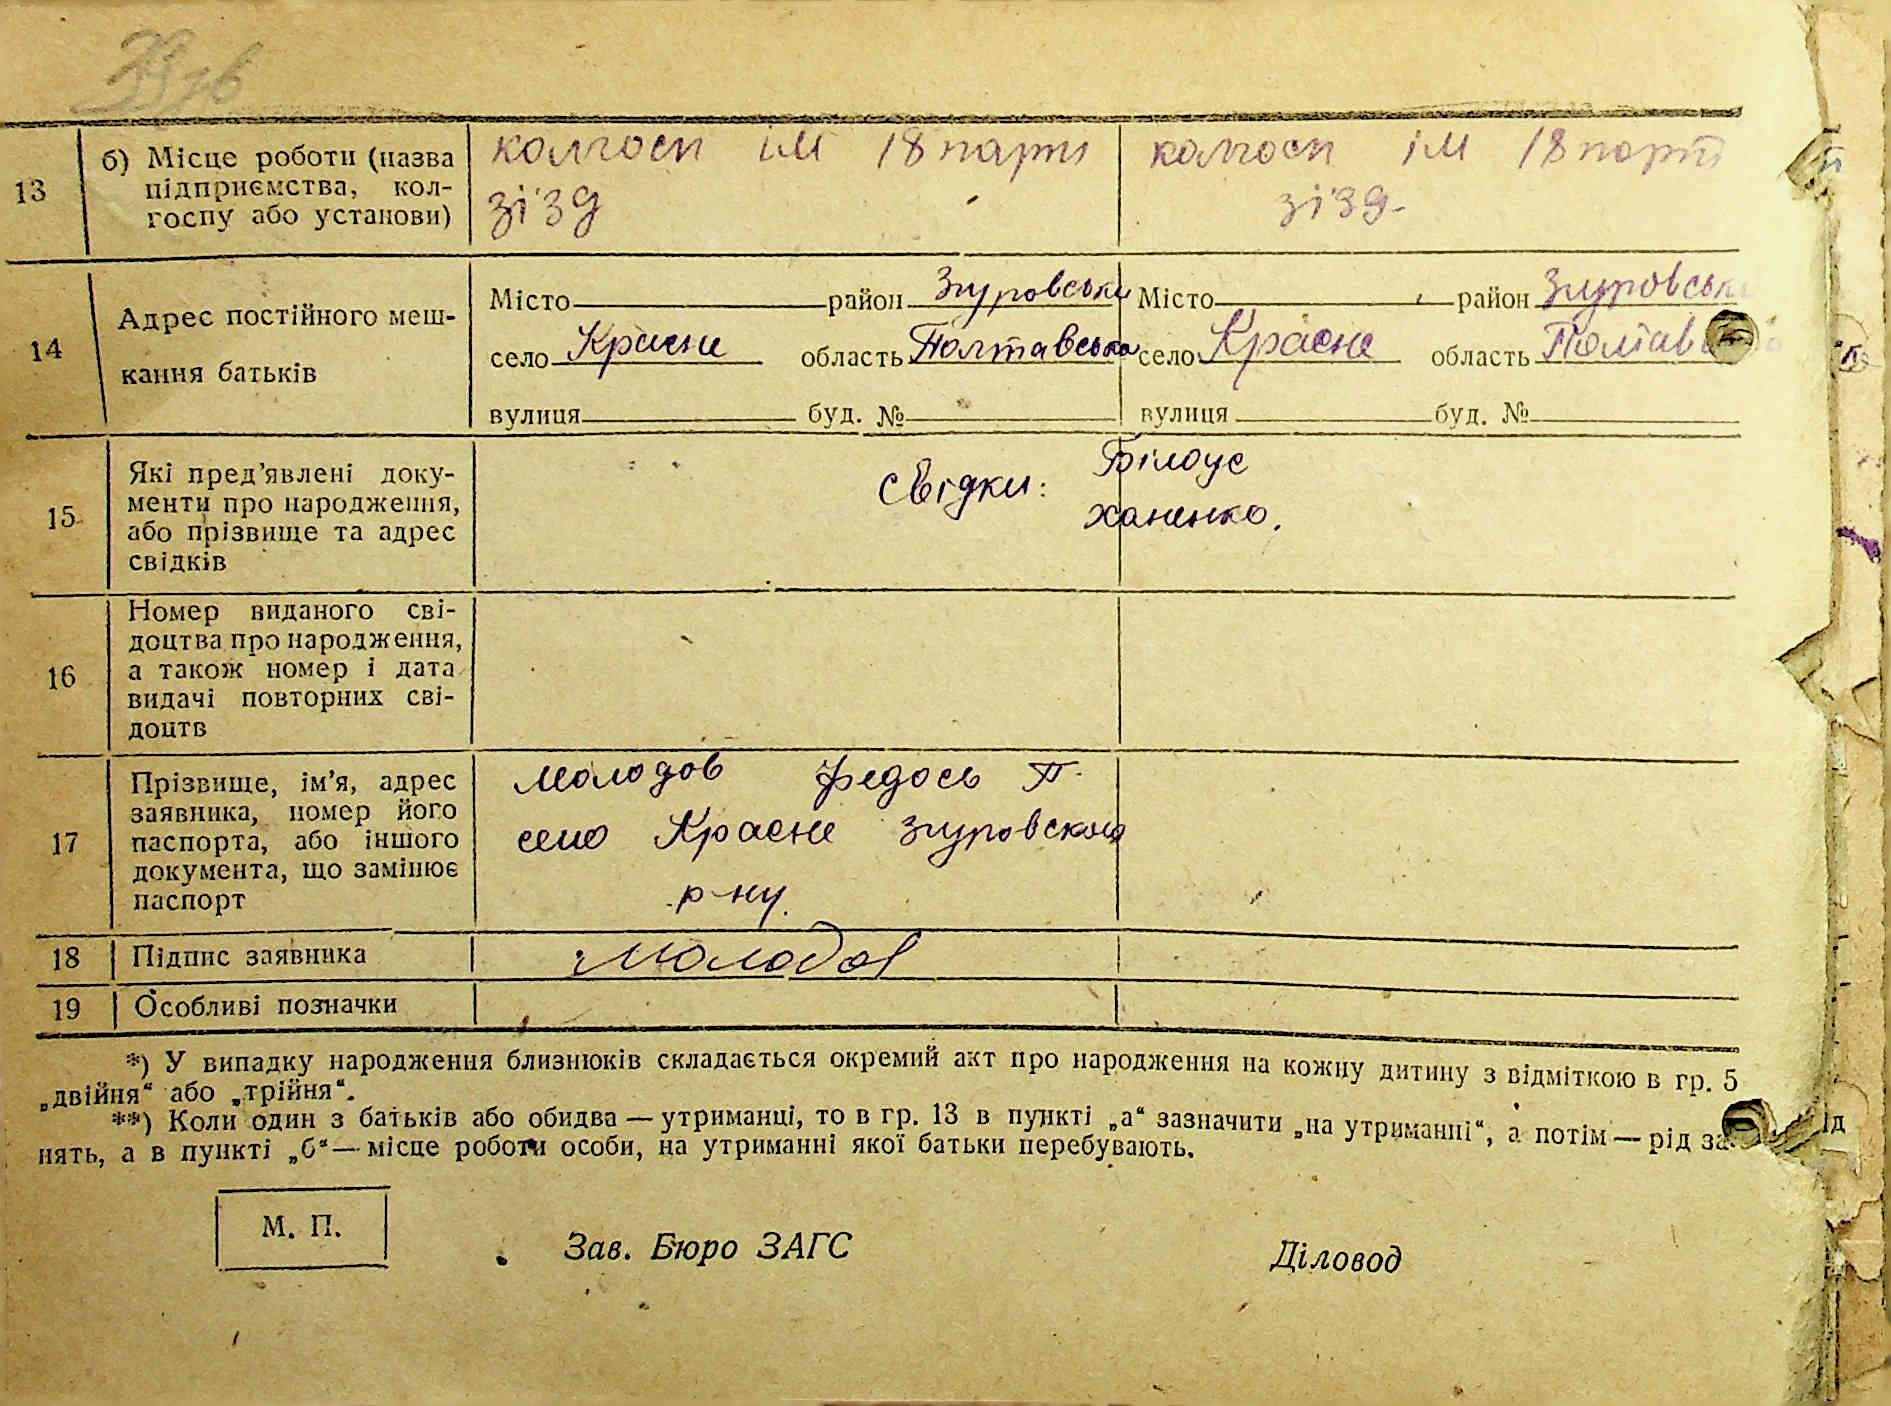 13
б) Місце роботи (назва
підприємства, кол-
госпу або установи)
колгосп ім 18 парт
зізд
колгосп ім 18 парт
зізд-
14
Адрес постійного меш-
кання батьків
Місто район Згуровськи
село Красне область Полтавська
вулиця буд. №
Місто район Згуровськ
село Красне область Полтавсь
вулиця буд. №
15
Які пред’явлені доку-
менти про народження,
або прізвище та адрес
свідків
Свідки: Білоус
Ханенко.
16
Номер виданого сві-
доцтва про народження,
а також номер і дата
видачі повторних сві-
доцтв
17
Прізвище, ім’я, адрес
заявника, номер його
паспорта, або іншого
документа, що замінює
паспорт
Молодов Федось П.
село Красне Згуровского
р-ну.
18 Підпис заявника Молодов
19 Особливі позначки
*) У випадку народження близнюків складається окремий акт про народження на кожну дитину з відміткою в гр. 5
„двійня“ або „трійня“.
**) Коли один з батьків або обидва — утриманці, то в гр. 13 в пункті „а“ зазначити „на утриманні“, а потім — рід за-
нять, а в пункті „б“ — місце роботи особи, на утриманні якої батьки перебувають.
М. П.
Зав. Бюро ЗАГС
Діловод